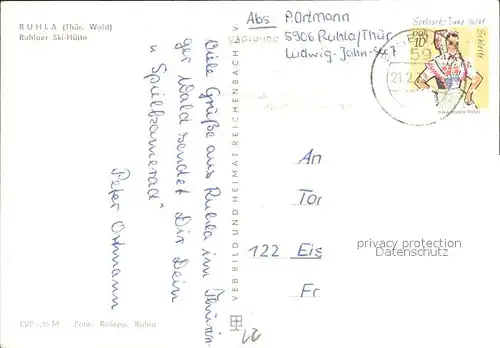 RUHLA (Thür. Wald)
Ruhlaer Ski-Hütte
Abs P. Ortmann
5906 Ruhla/Thür.
Ludwig-Jahn-Str 7
Viele Grüße aus Ruhla im Thürin-
ger Wald sendet Dir Dein
"Spielkamerad"
Peter Ortmann
VEB BILD UND HEIMAT REICHENBACH
DDR
10
59
21.2.7
An
Tor
122 Eis
Fr
privacy protection
Datenschutz
EVP -,25 M Foto: Ruhla